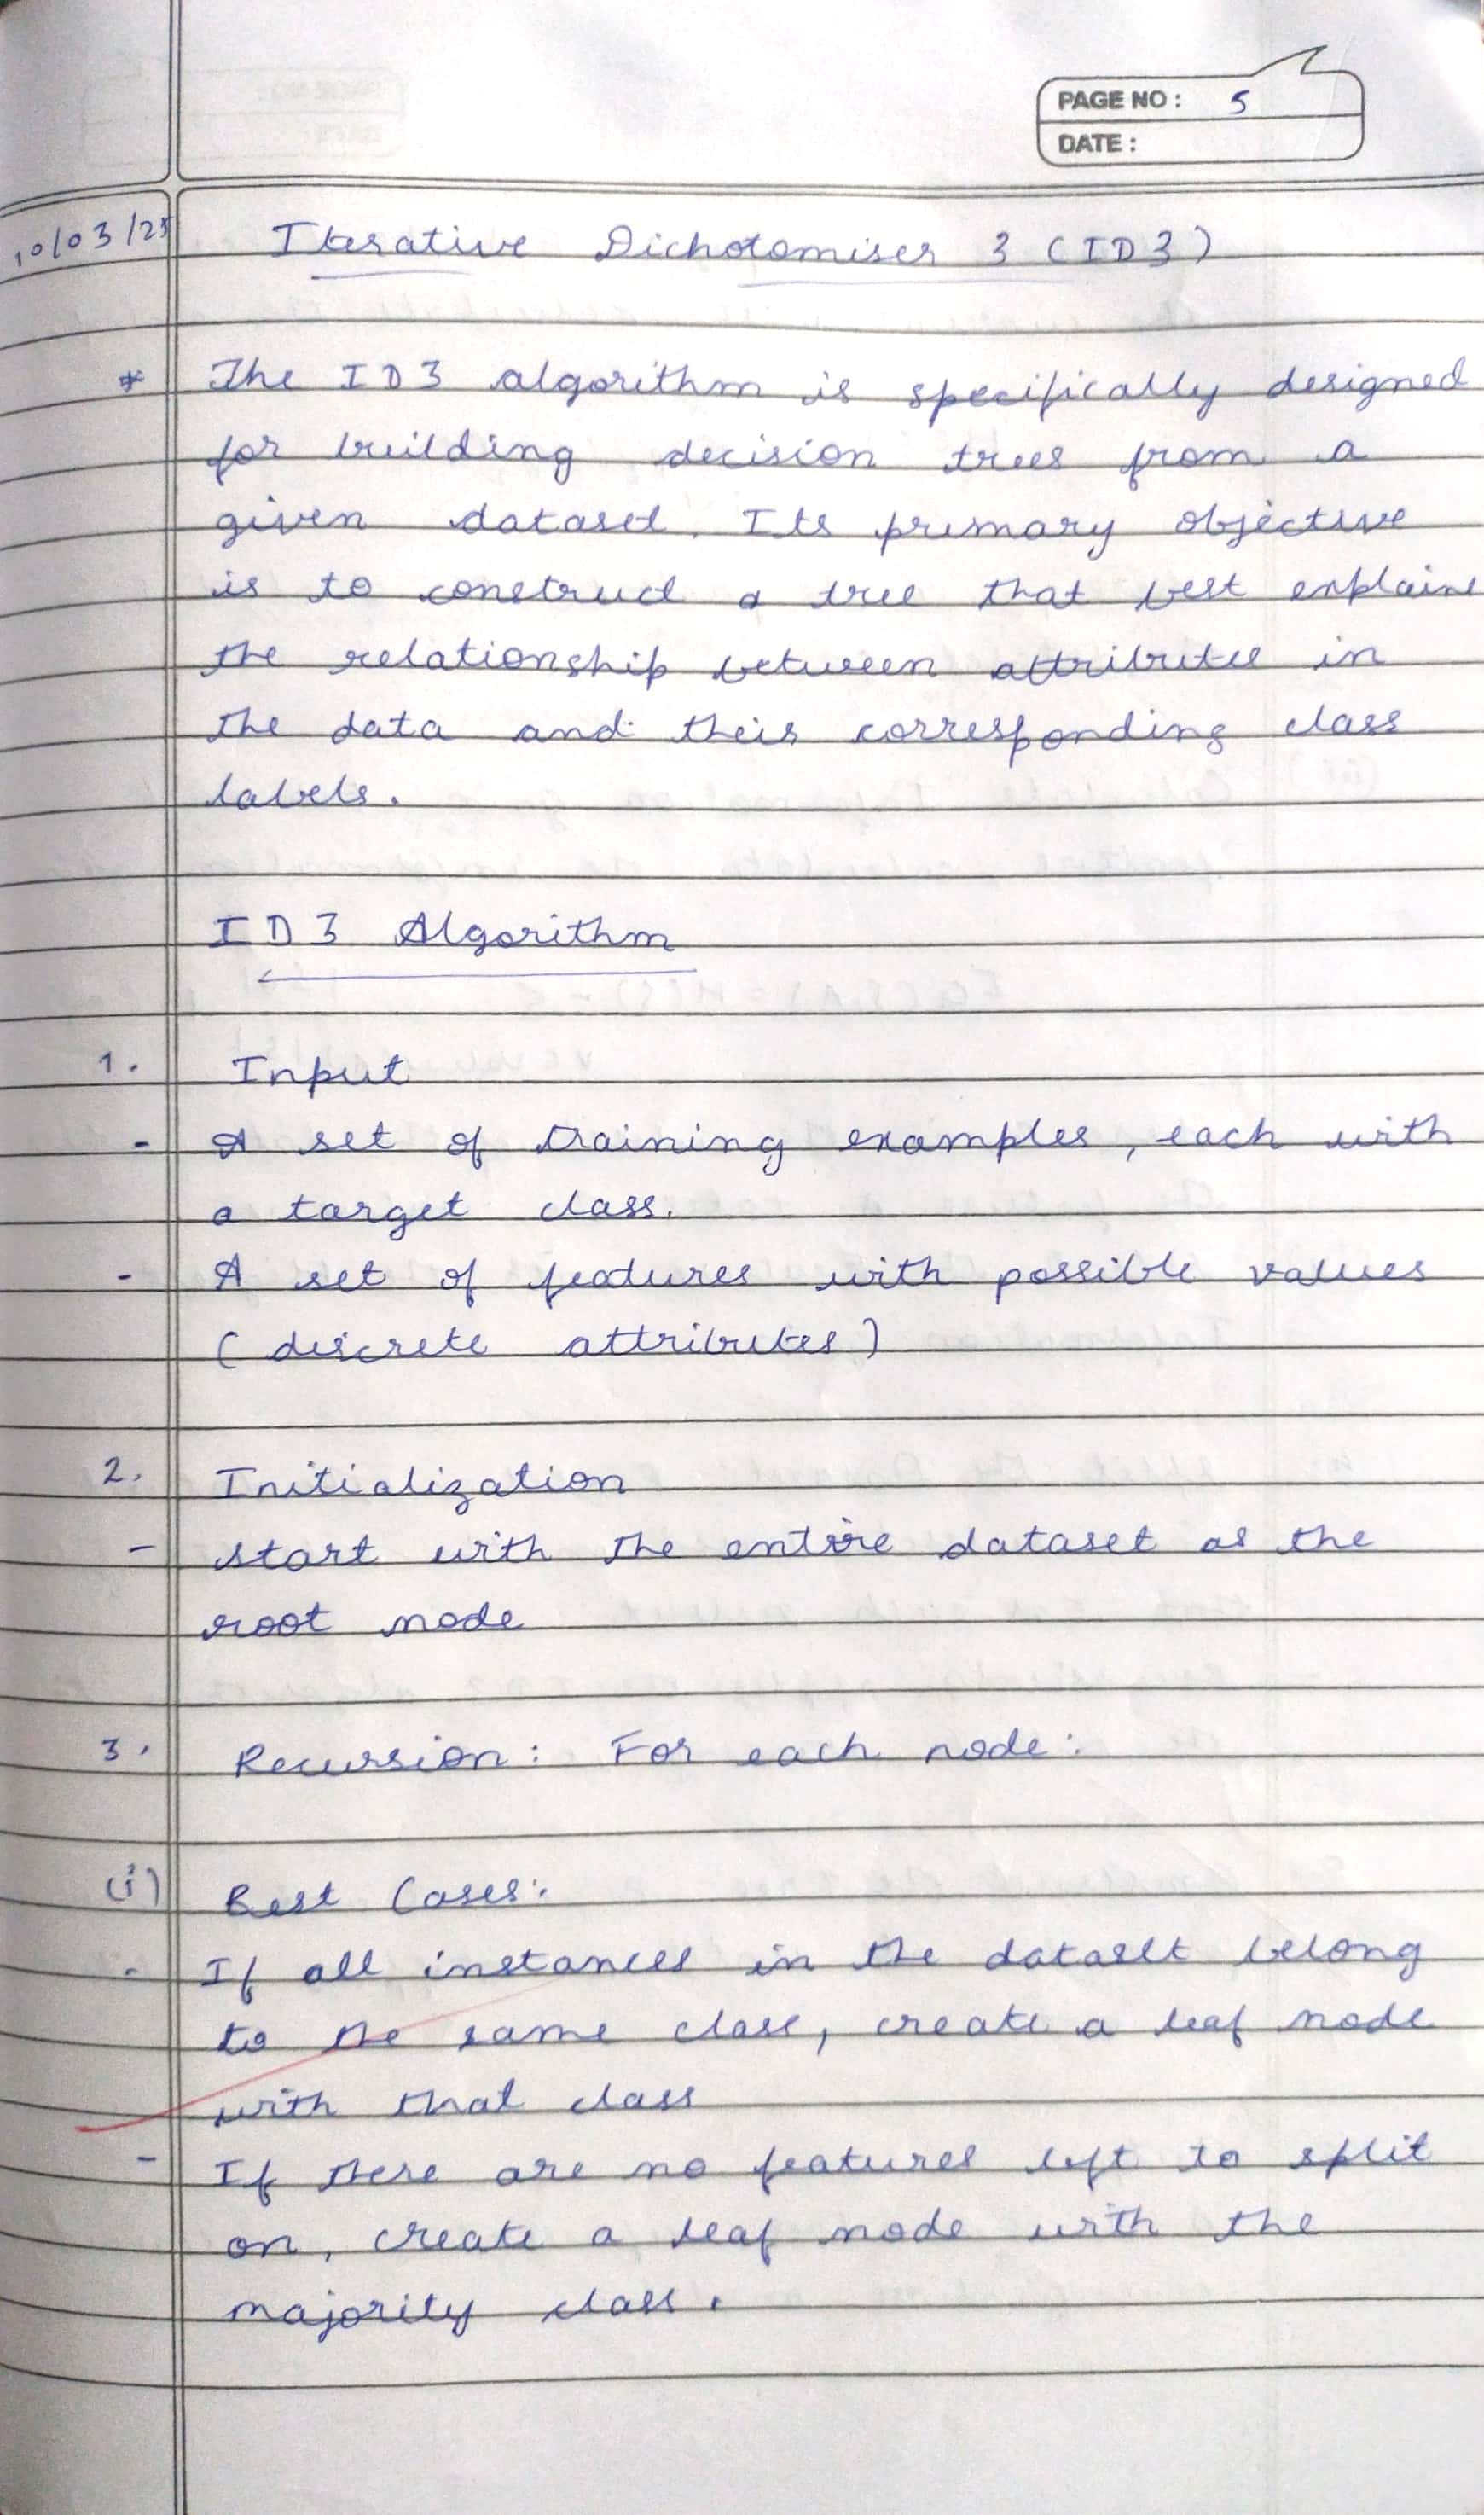 PAGE NO: 5
DATE:
10/03/25
Iterative Dichotomiser 3 (ID3)
* The ID3 algorithm is specifically designed
for building decision trees from a
given dataset. Its primary objective
is to construct a tree that best explains
the relationship between attributes in
the data and their corresponding class
labels.
ID3 Algorithm
1. Input
- A set of training examples, each with
a target class.
- A set of features with possible values
(discrete attributes)
2. Initialization
- start with the entire dataset as the
root node
3. Recursion: For each node:
(i) Best Cases:
- If all instances in the dataset belong
to the same class, create a leaf node
with that class
- If there are no features left to split
on, create a leaf node with the
majority class.